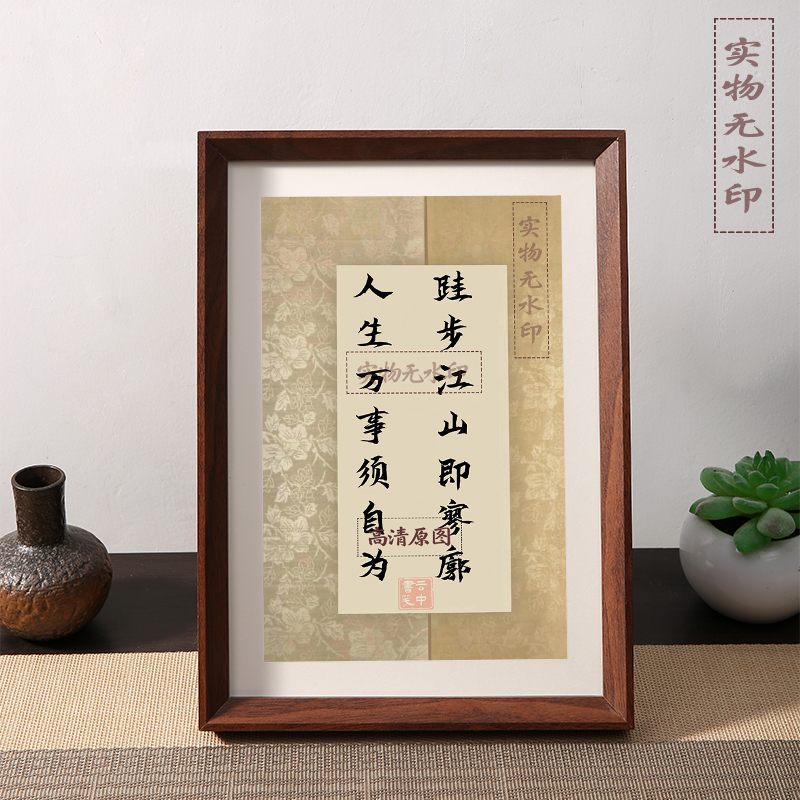 实物无水印
实物无水印
人生万事须自为
跬步江山即寥廓
实物无水印
高清原图
云中
書笺